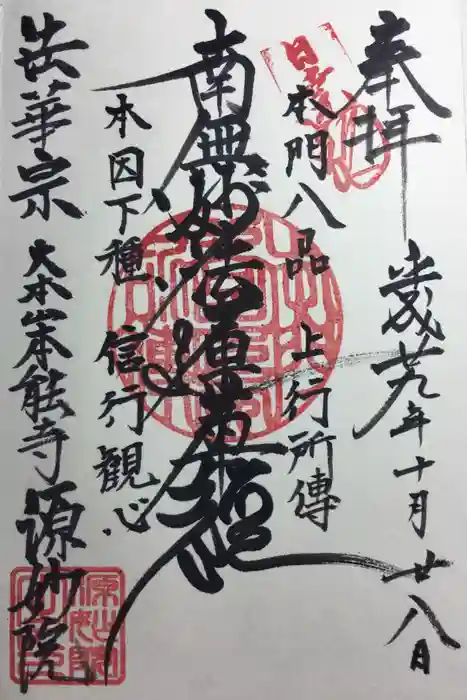 奉拝
歳廿九年十月廿八日
本門八品 上行所傳
南無妙法蓮華経
本因下種 信行観心
法華宗 大本山本能寺 源妙院